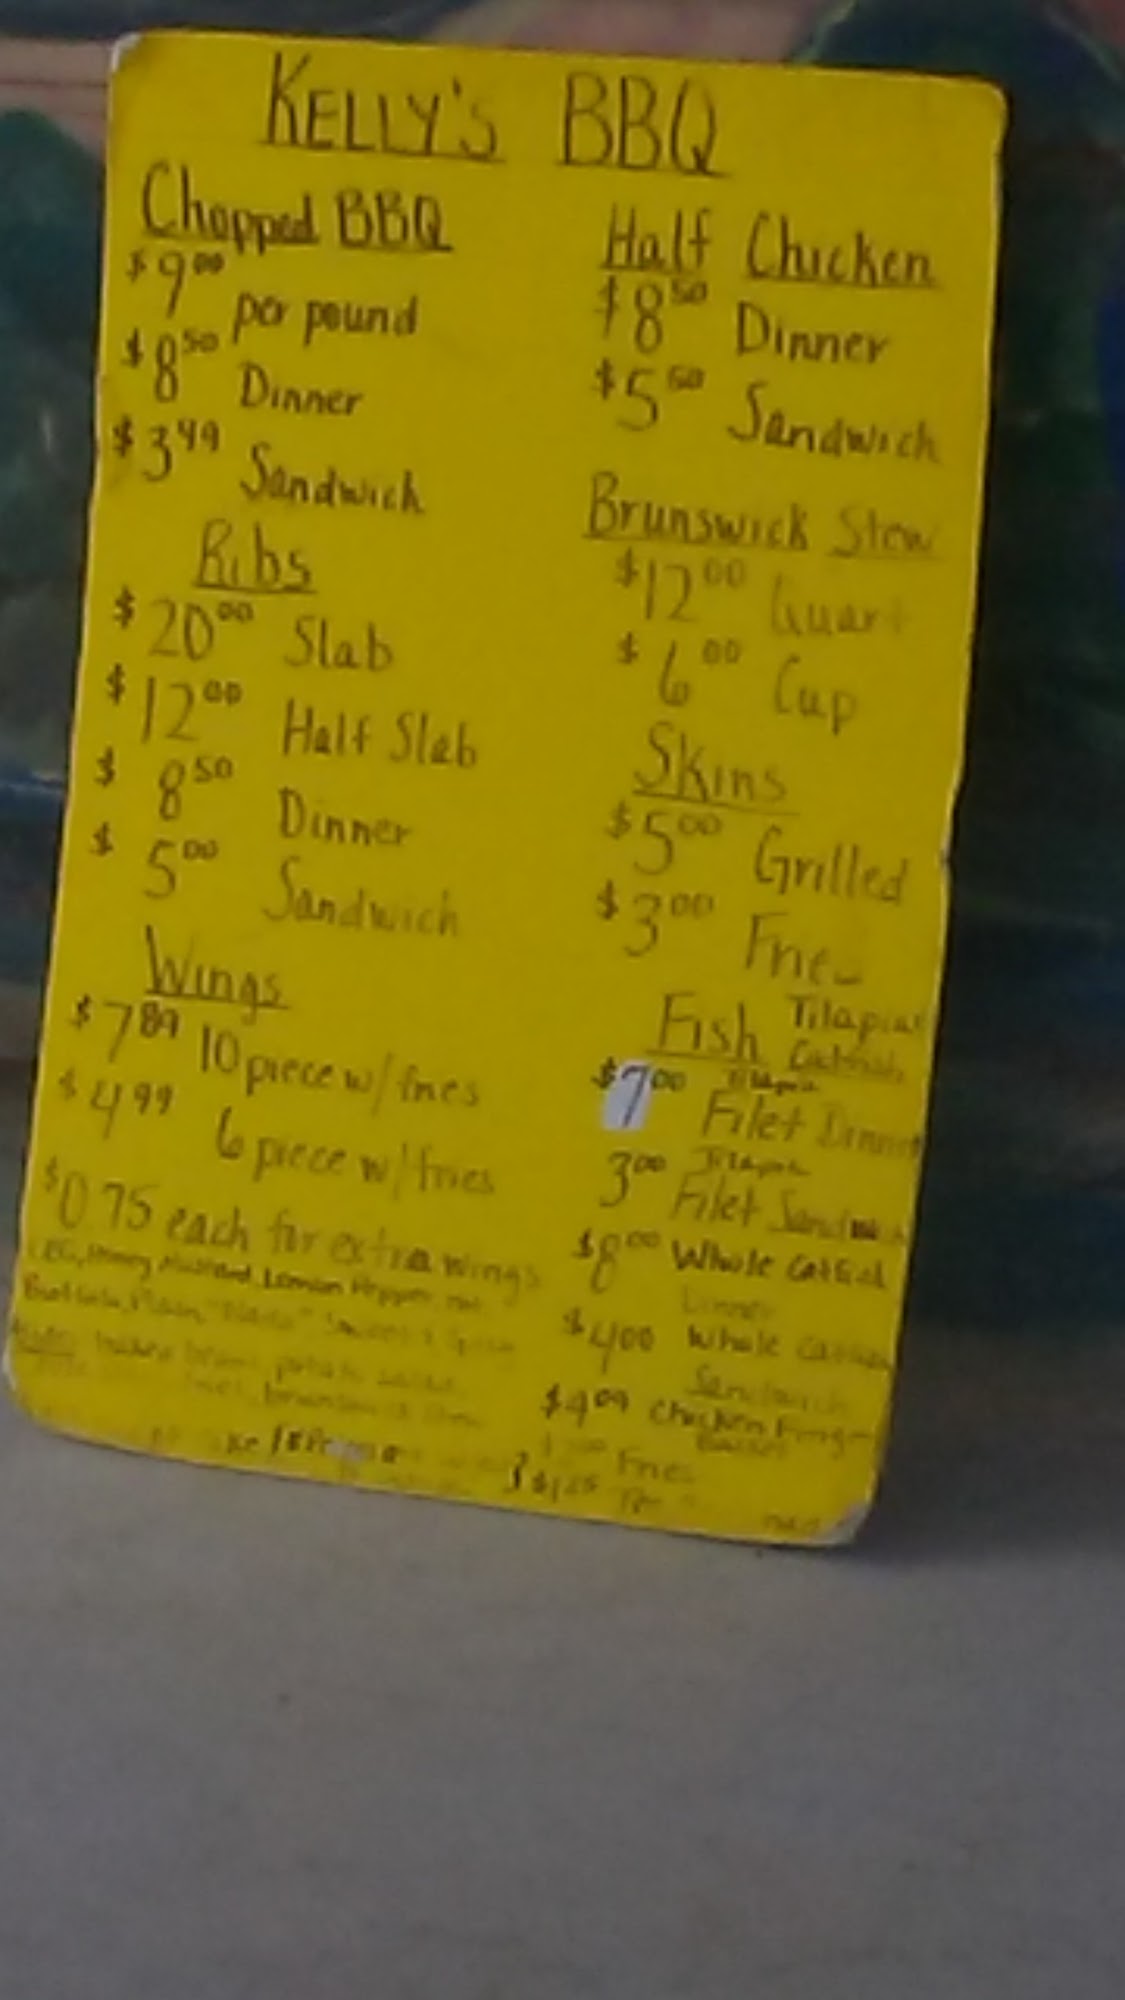 KELLY'S BBQ
Chopped BBQ
$9.00 per pound
$8.50 Dinner
$3.49 Sandwich
Ribs
$20.00 Slab
$12.00 Half Slab
$8.50 Dinner
$5.00 Sandwich
Wings
$7.89 10 piece w/ fries
$4.99 6 piece w/ fries
$0.75 each for extra wings
Honey Mustard, Lemon Pepper,
Plain
baked beans, potato salad
Half Chicken
$8.50 Dinner
$5.50 Sandwich
Brunswick Stew
$12.00 Quart
$6.00 Cup
Skins
$5.00 Grilled
$3.00
Fish Tilapia
Catfish
$7.00 Tilapia
Filet Dinner
3.00 Tilapia
Filet Sandwich
$8.00 Whole Catfish
Dinner
$4.00 Whole Catfish
Sandwich
Chicken Finger
Fries